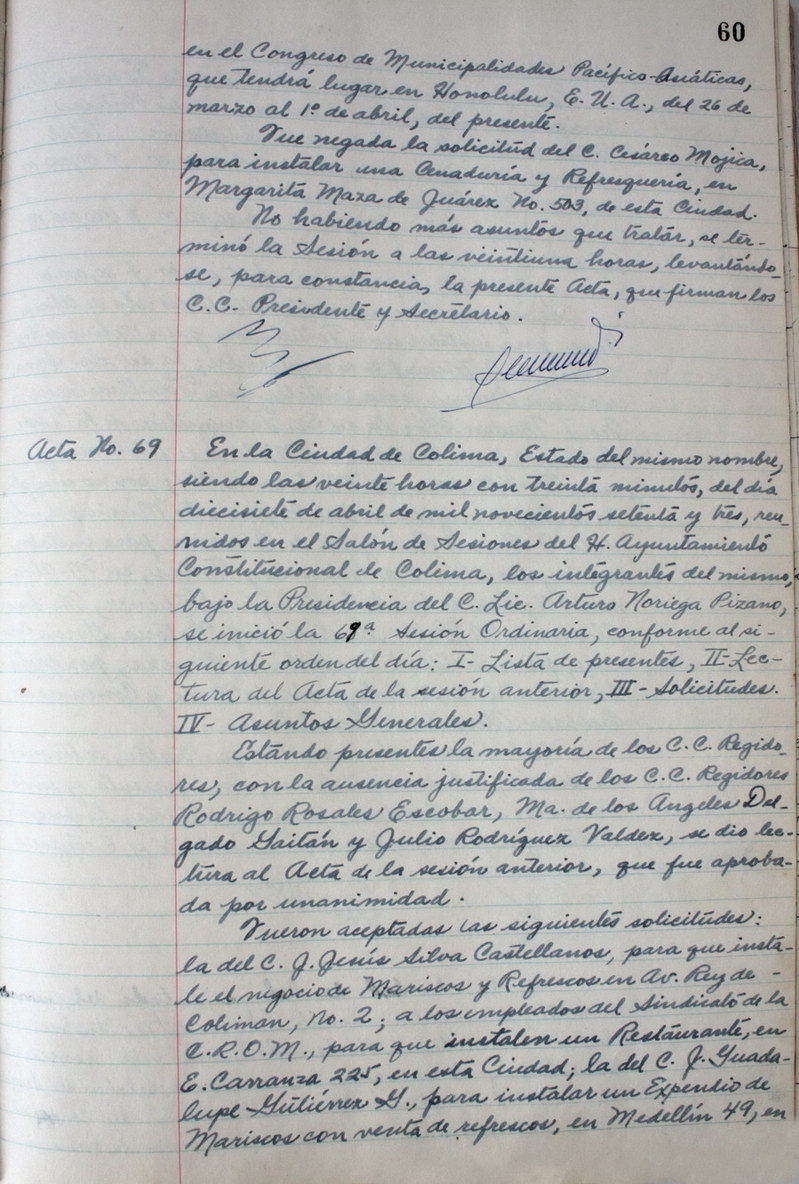 60
en el Congreso de Municipalidades Pacífico-Asiáticas,
que tendrá lugar en Honolulu, E. U. A., del 26 de
marzo al 1º de abril, del presente.
Fue negada la solicitud del C. Cesáreo Mojica,
para instalar una Cenaduría y Refresquería, en
Margarita Maza de Juárez No. 503, de esta Ciudad.
No habiendo más asuntos que tratar, se ter-
minó la Sesión a las veintiuna horas, levantándo-
se, para constancia, la presente Acta, que firman los
C.C. Presidente y Secretario.
Acta No. 69
En la Ciudad de Colima, Estado del mismo nombre,
siendo las veinte horas con treinta minutos, del día
diecisiete de abril de mil novecientos setenta y tres, reu-
nidos en el Salón de Sesiones del H. Ayuntamiento
Constitucional de Colima, los integrantes del mismo,
bajo la Presidencia del C. Lic. Arturo Noriega Pizano,
se inició la 69ª Sesión Ordinaria, conforme al si-
guiente orden del día: I- Lista de presentes, II- Lec-
tura del Acta de la sesión anterior, III- Solicitudes.
IV- Asuntos Generales.
Estando presentes la mayoría de los C.C. Regido-
res, con la ausencia justificada de los C.C. Regidores
Rodrigo Rosales Escobar, Ma. de los Angeles Del-
gado Gaitán y Julio Rodríguez Valdez, se dio lec-
tura al Acta de la sesión anterior, que fue aproba-
da por unanimidad.
Fueron aceptadas las siguientes solicitudes:
la del C. J. Jesús Silva Castellanos, para que insta-
le el negocio de Mariscos y Refrescos en Av. Rey de -
Coliman, No. 2; a los empleados del Sindicato de la
C.R.O.M., para que instalen un Restaurante, en
E. Carranza 225, en esta Ciudad; la del C. J. Guada-
lupe Gutiérrez G., para instalar un Expendio de
Mariscos con venta de refrescos, en Medellín 49, en